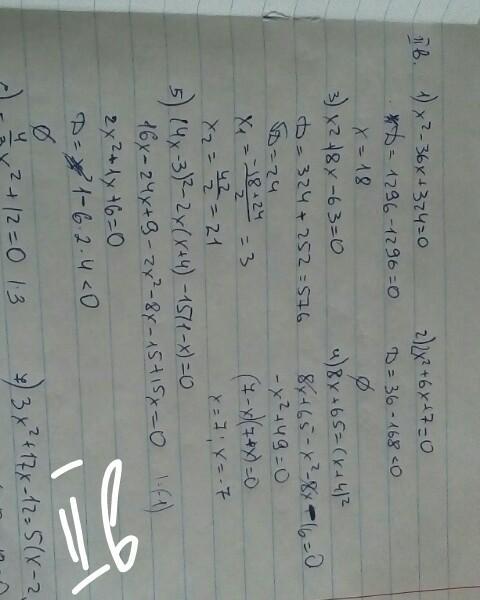 II в.
1) x² - 36x + 324 = 0
D = 1296 - 1296 = 0
x = 18
2) 2x² + 6x + 17 = 0
D = 36 - 168 < 0
∅
3) x² + 18x - 63 = 0
D = 324 + 252 = 576
√D = 24
x₁ = -18+24/2 = 3
x₂ = 42/2 = 21
4) 8x + 65 = (x + 4)²
8x + 65 - x² - 8x - 16 = 0
-x² + 49 = 0
(7 - x)(7 + x) = 0
x = 7; x = -7
5) (4x - 3)² - 2x(x + 4) - 15(1 - x) = 0
16x - 24x + 9 - 2x² - 8x - 15 + 15x = 0 |:(-1)
2x² + 1x + 6 = 0
D = 1 - 6 · 2 · 4 < 0
∅
x² + 12 = 0 | · 3
3x² + 17x - 12 = 5(x - 2